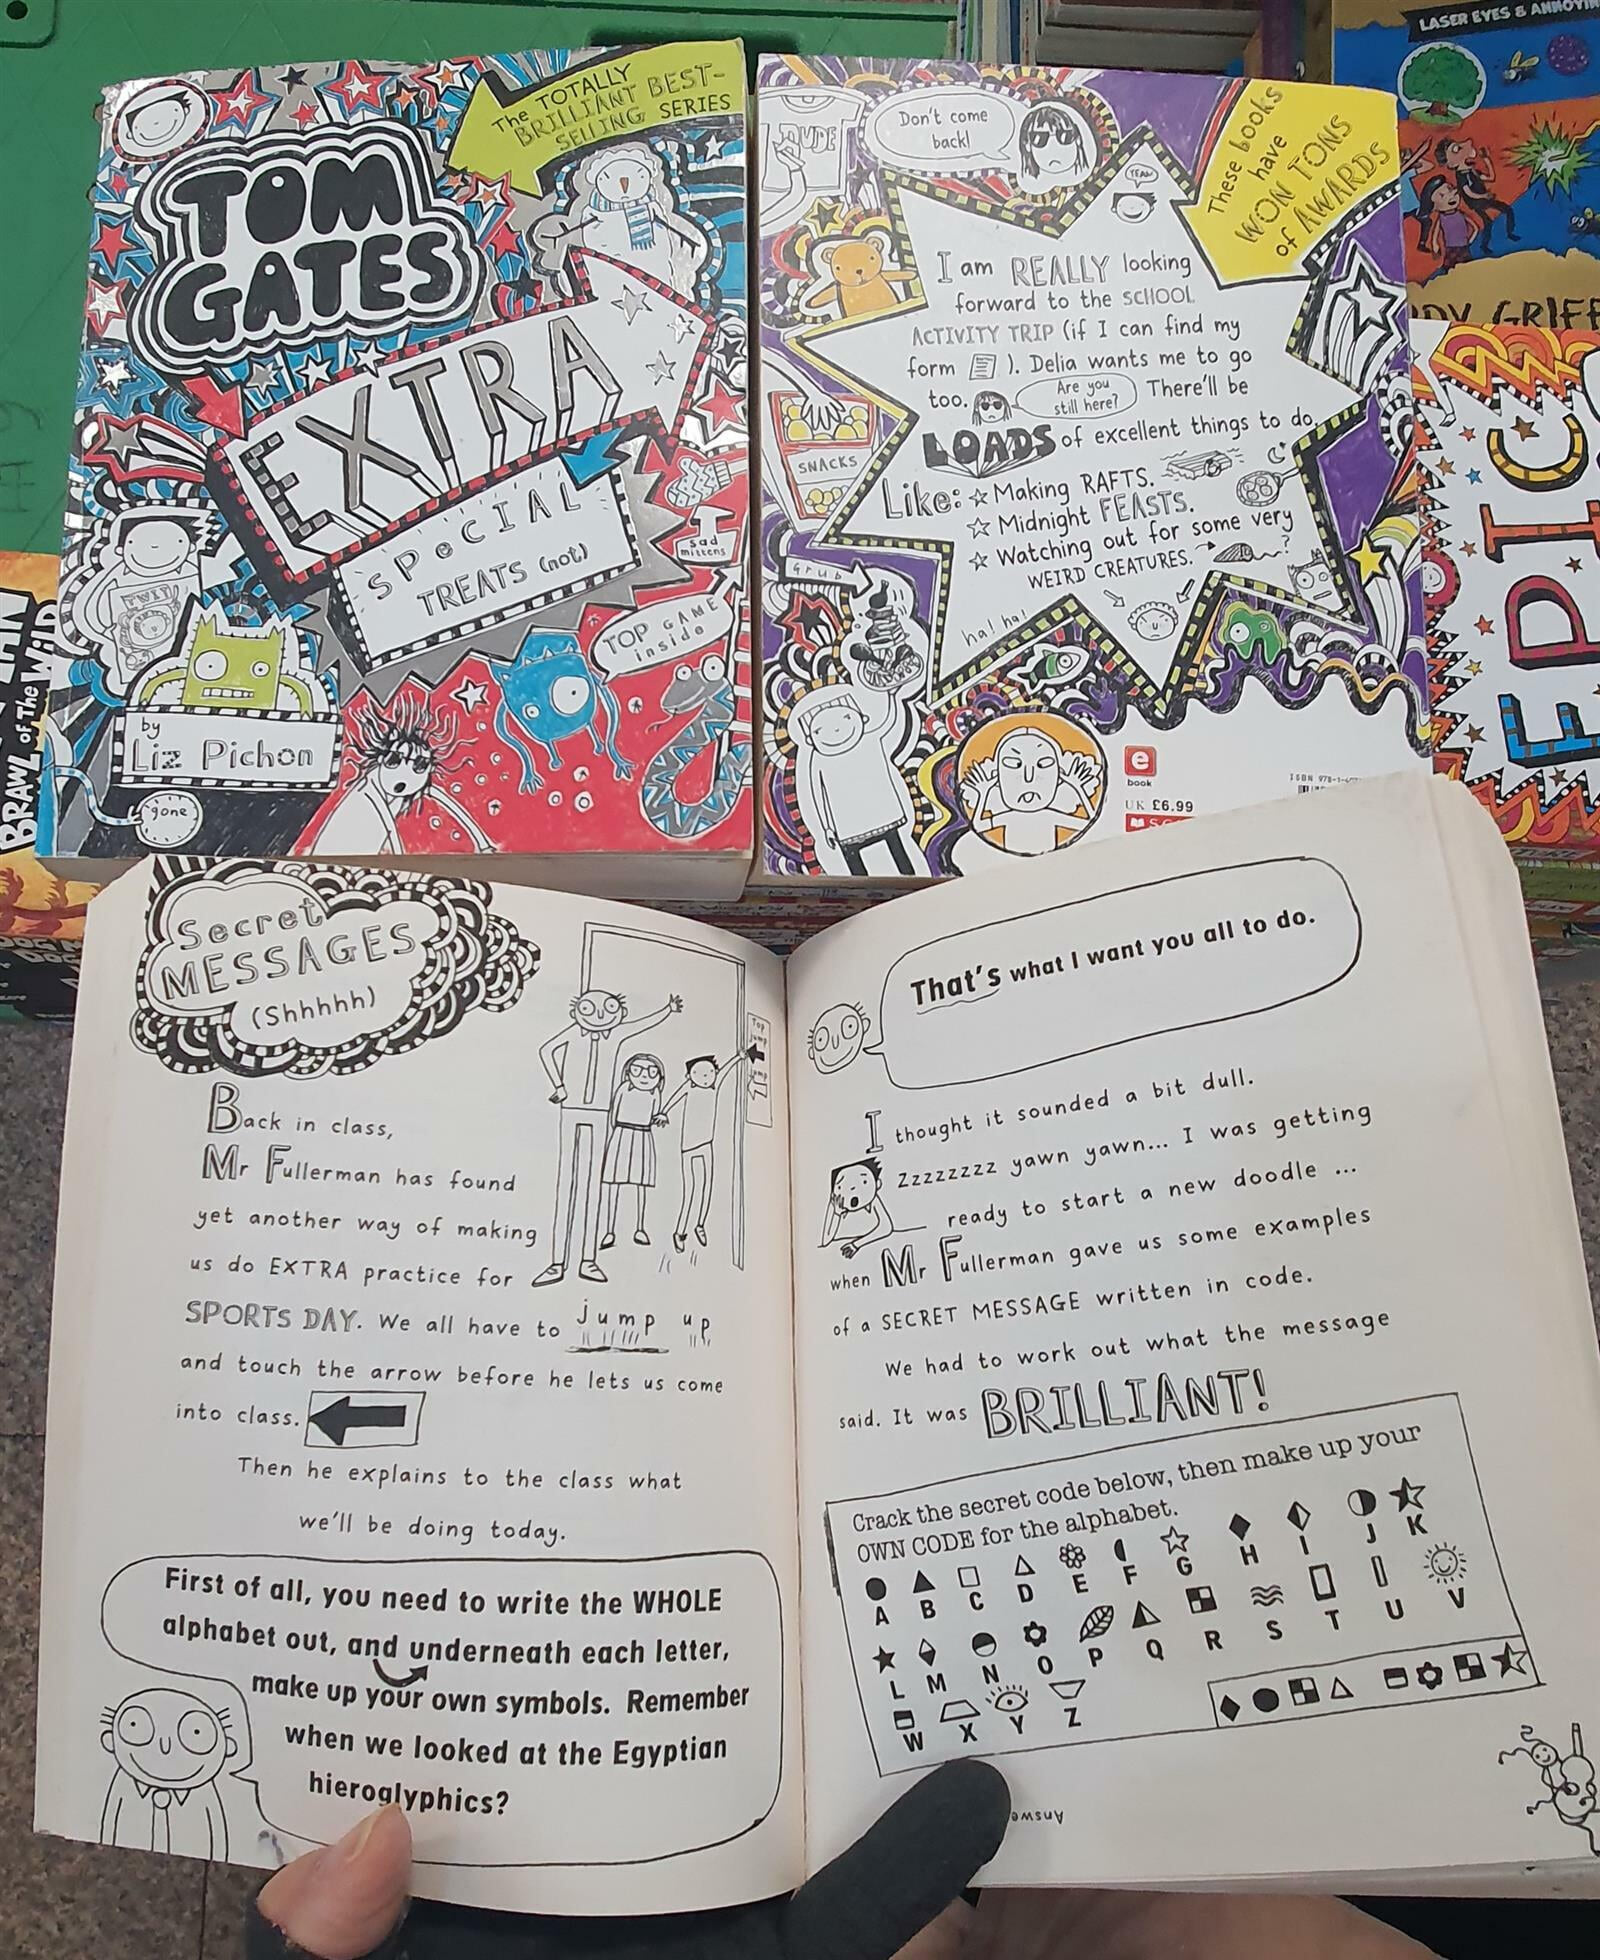 TOM
GATES
The TOTALLY
BRILLIANT BEST-
SELLING SERIES
EXTRA
SPeCIAL
TREATS (not)
Sad
mittens
TOP GAME
inside
by
Liz Pichon
gone
BRAWL of The Wild
DUDE
Don't come
back!
YEAH
These books
have
WON TONS
of AWARDS
I am REALLY looking
forward to the SCHOOL
ACTIVITY TRIP (if I can find my
form ). Delia wants me to go
too. Are you
still here? There'll be
LOADS of excellent things to do.
Like: ☆ Making RAFTS.
☆ Midnight FEASTS.
☆ Watching out for some very
WEIRD CREATURES. ?
SNACKS
Grub
ha! ha!
e
book
UK £6.99
LASER EYES &
EPIC
Secret
MESSAGES
(Shhhhh)
Top
jump
Back in class,
Mr Fullerman has found
yet another way of making
us do EXTRA practice for
SPORTS DAY. We all have to jump up
and touch the arrow before he lets us come
into class.
Then he explains to the class what
we'll be doing today.
First of all, you need to write the WHOLE
alphabet out, and underneath each letter,
make up your own symbols. Remember
when we looked at the Egyptian
hieroglyphics?
That's what I want you all to do.
I thought it sounded a bit dull.
Zzzzzzzz yawn yawn... I was getting
ready to start a new doodle ...
when Mr Fullerman gave us some examples
of a SECRET MESSAGE written in code.
We had to work out what the message
said. It was BRILLIANT!
Crack the secret code below, then make up your
OWN CODE for the alphabet.
A B C D E F G H I J K
L M N O P Q R S T U V
W X Y Z